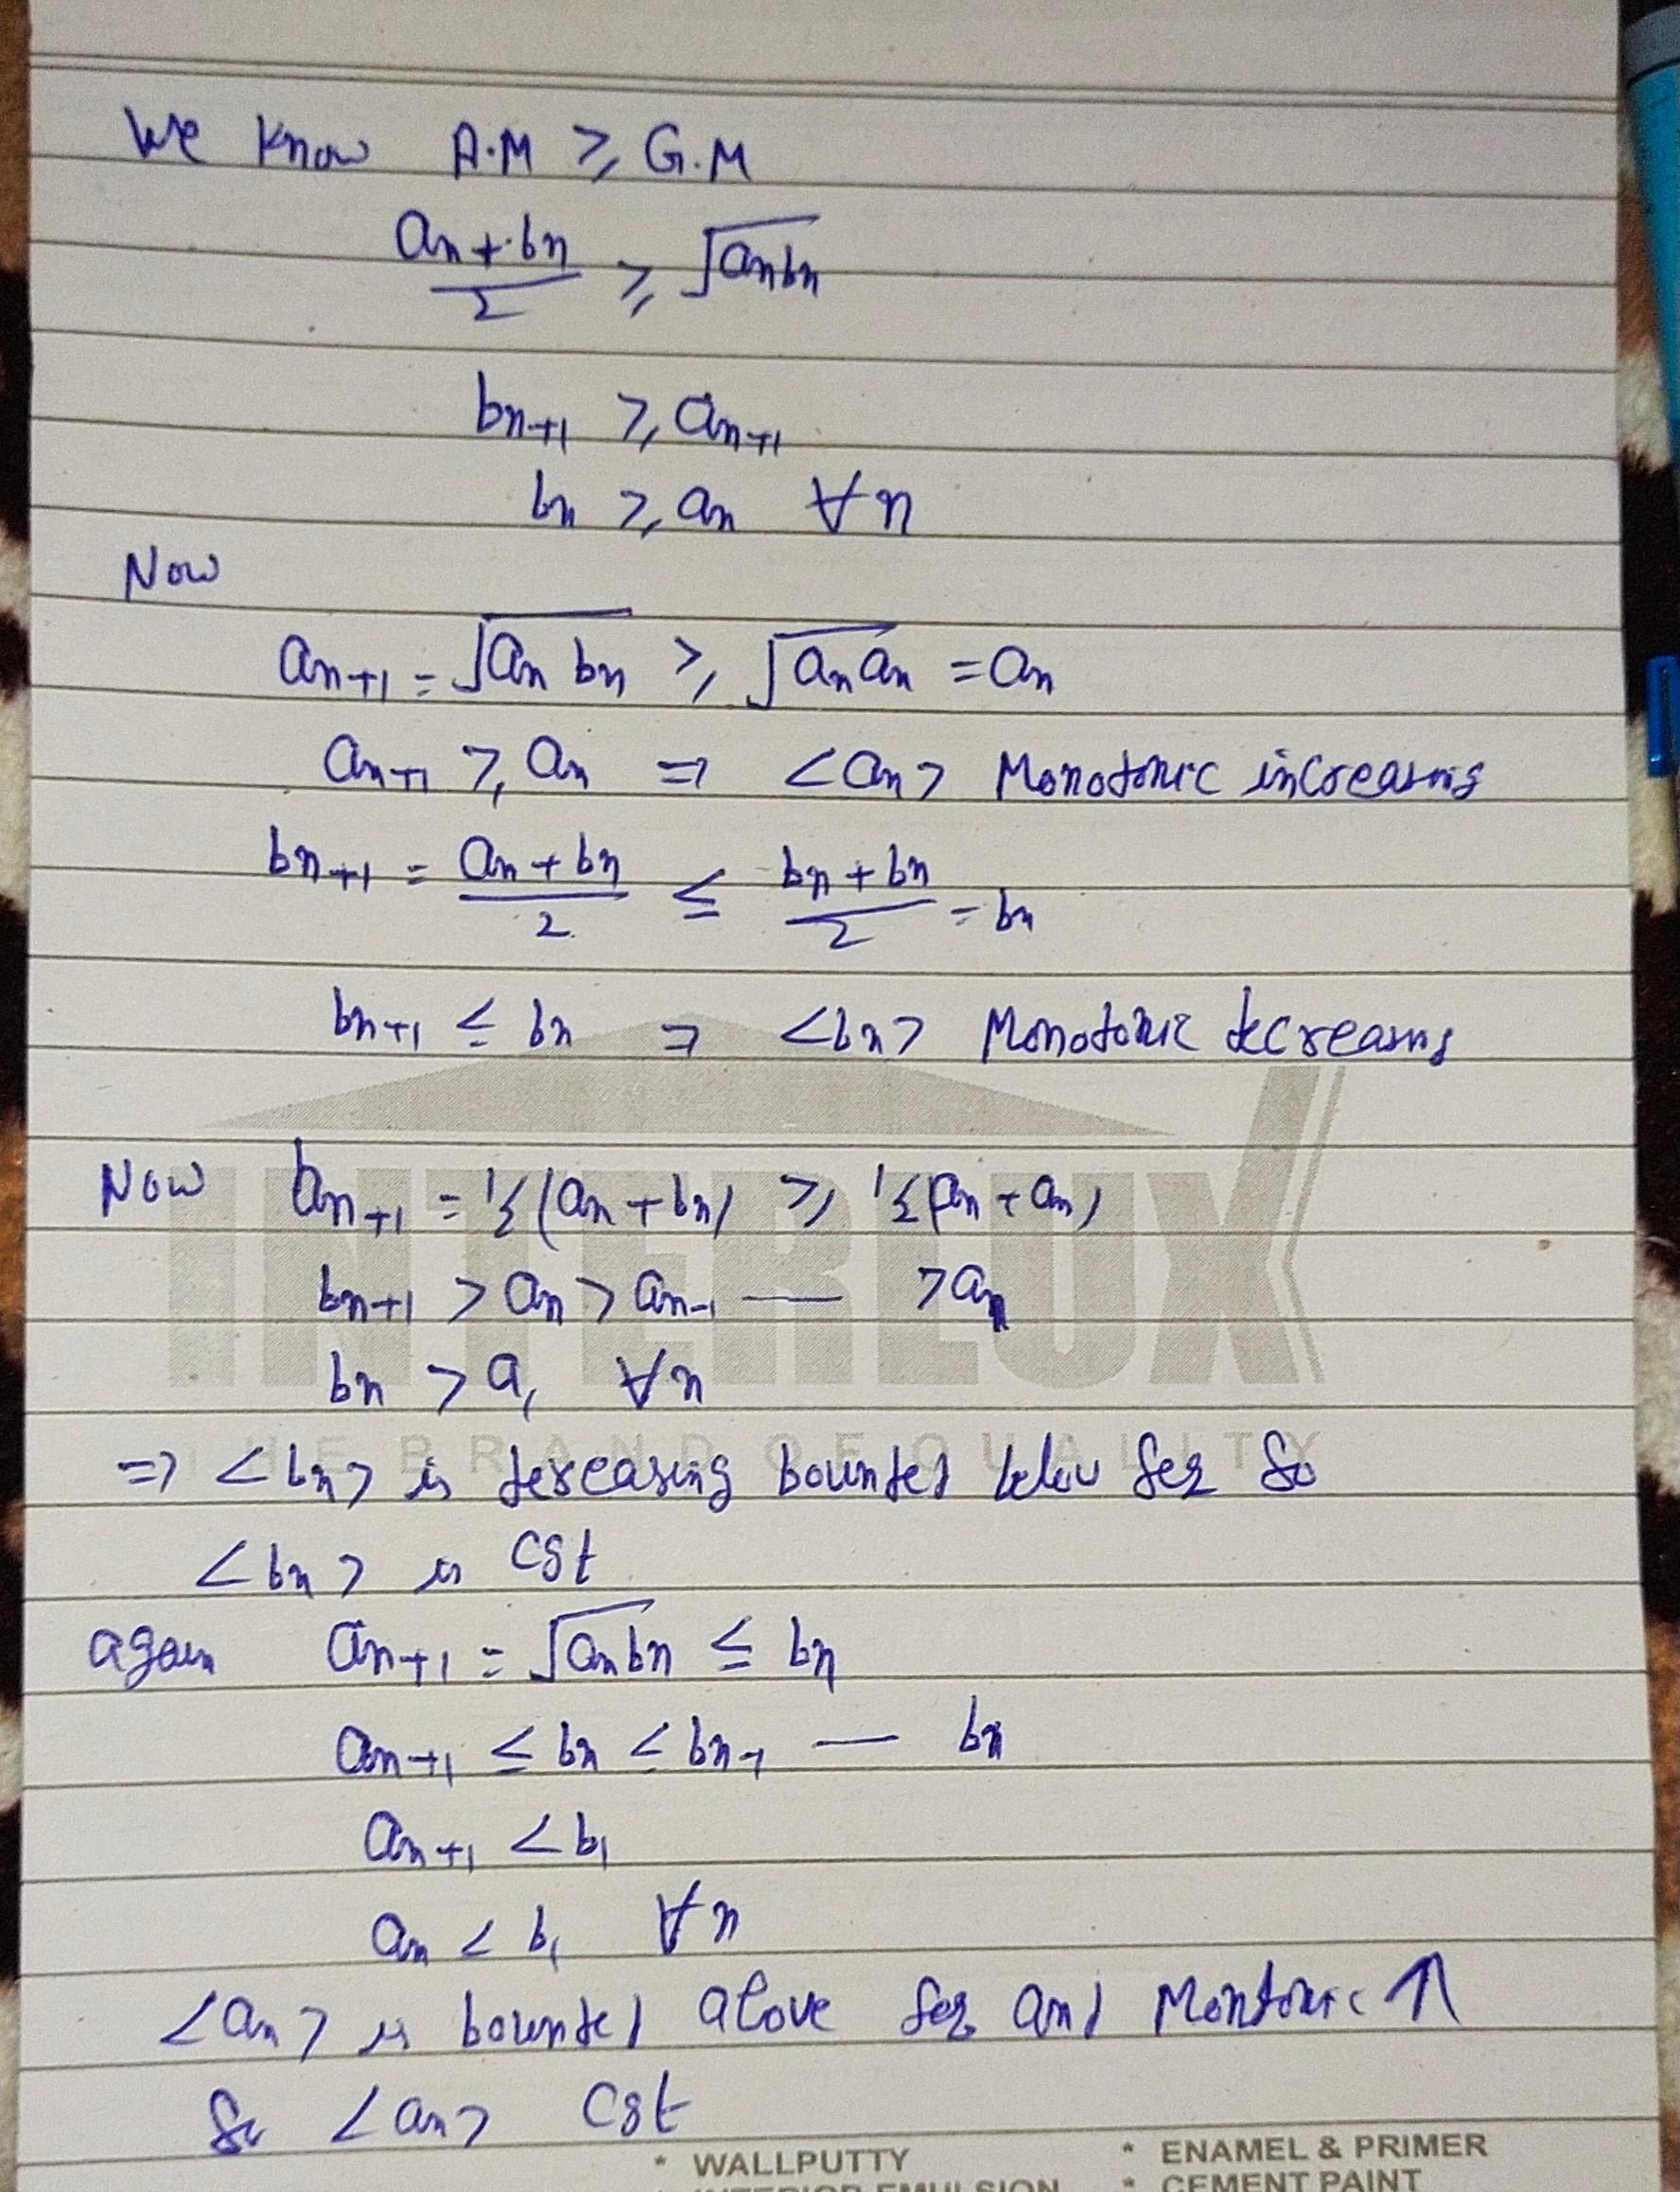 We know A.M ≥ G.M
an+bn/2 ≥ √anbn
bn+1 ≥ an+1
bn ≥ an ∀n
Now
an+1 = √an bn ≥ √an an = an
an+1 ≥ an ⇒ <an> Monotonic increasing
bn+1 = an+bn/2 ≤ bn+bn/2 = bn
bn+1 ≤ bn ⇒ <bn> Monotonic decreasing
Now bn+1 = 1/2(an+bn) ≥ 1/2(an+an)
bn+1 > an > an-1 — > a1
bn > a1 ∀n
⇒ <bn> is decreasing bounded below seq So
<bn> is cgt
again an+1 = √anbn ≤ bn
an+1 ≤ bn < bn-1 — b1
an+1 < b1
an < b1 ∀n
<an> is bounded above seq and Montonic ↑
So <an> cgt
INTERLUX
THE BRAND OF QUALITY
* WALLPUTTY * ENAMEL & PRIMER
INTERIOR EMULSION * CEMENT PAINT